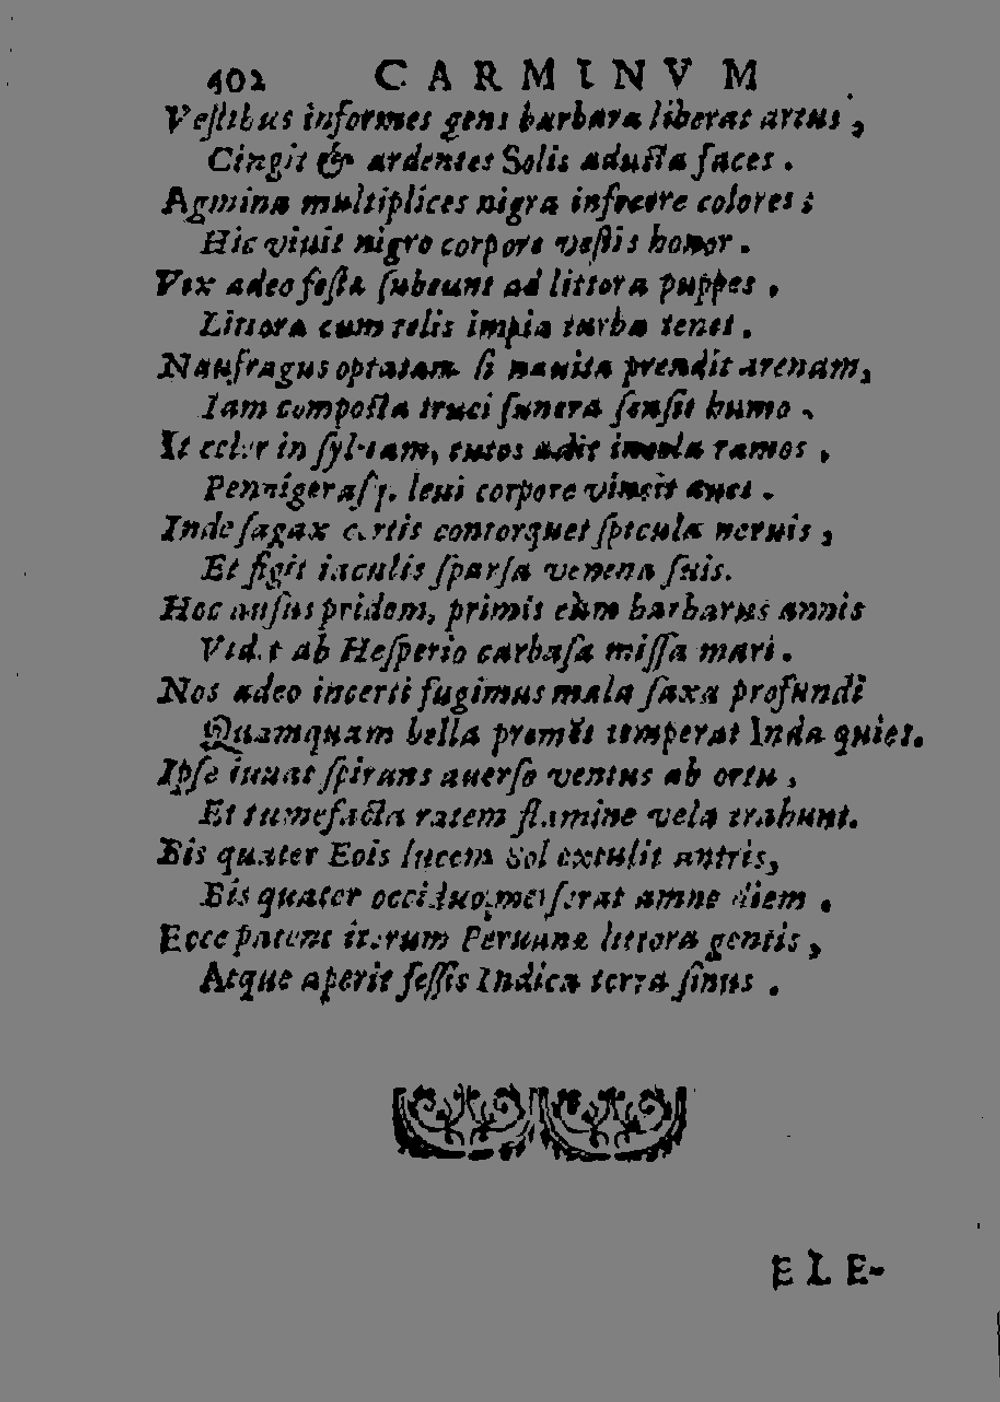 402 CARMINVM
Veſtibus informes gens barbara liberat artus,
Cingit & ardentes Solis aduſta faces.
Agmina multiplices nigra infecere colores;
Hic viuit nigro corpore veſtis honor.
Vix adeo feſſa ſubeunt ad littora puppes,
Littora cum telis impia turba tenet.
Naufragus optatam ſi nauita prendit arenam,
Iam compoſta truci funera ſenſit humo.
It celer in ſyluam, tutos adit incola ramos,
Pennigeraſq. leui corpore vincit aues.
Inde ſagax certis contorquet ſpicula neruis,
Et figit iaculis ſparſa venena ſuis.
Hoc auſus pridem, primis cùm barbarus annis
Vidit ab Heſperio carbaſa miſſa mari.
Nos adeo incerti fugimus mala ſaxa profundi
Quamquam bella premēs temperat Inda quies.
Ipſe iuuat ſpirans auerſo ventus ab ortu,
Et tumefacta ratem flamine vela trahunt.
Bis quater Eois lucem Sol extulit antris,
Bis quater occiduo merſerat amne diem.
Ecce patent iterum Peruanæ littora gentis,
Atque aperit feſſis Indica terra ſinus.
ELE-